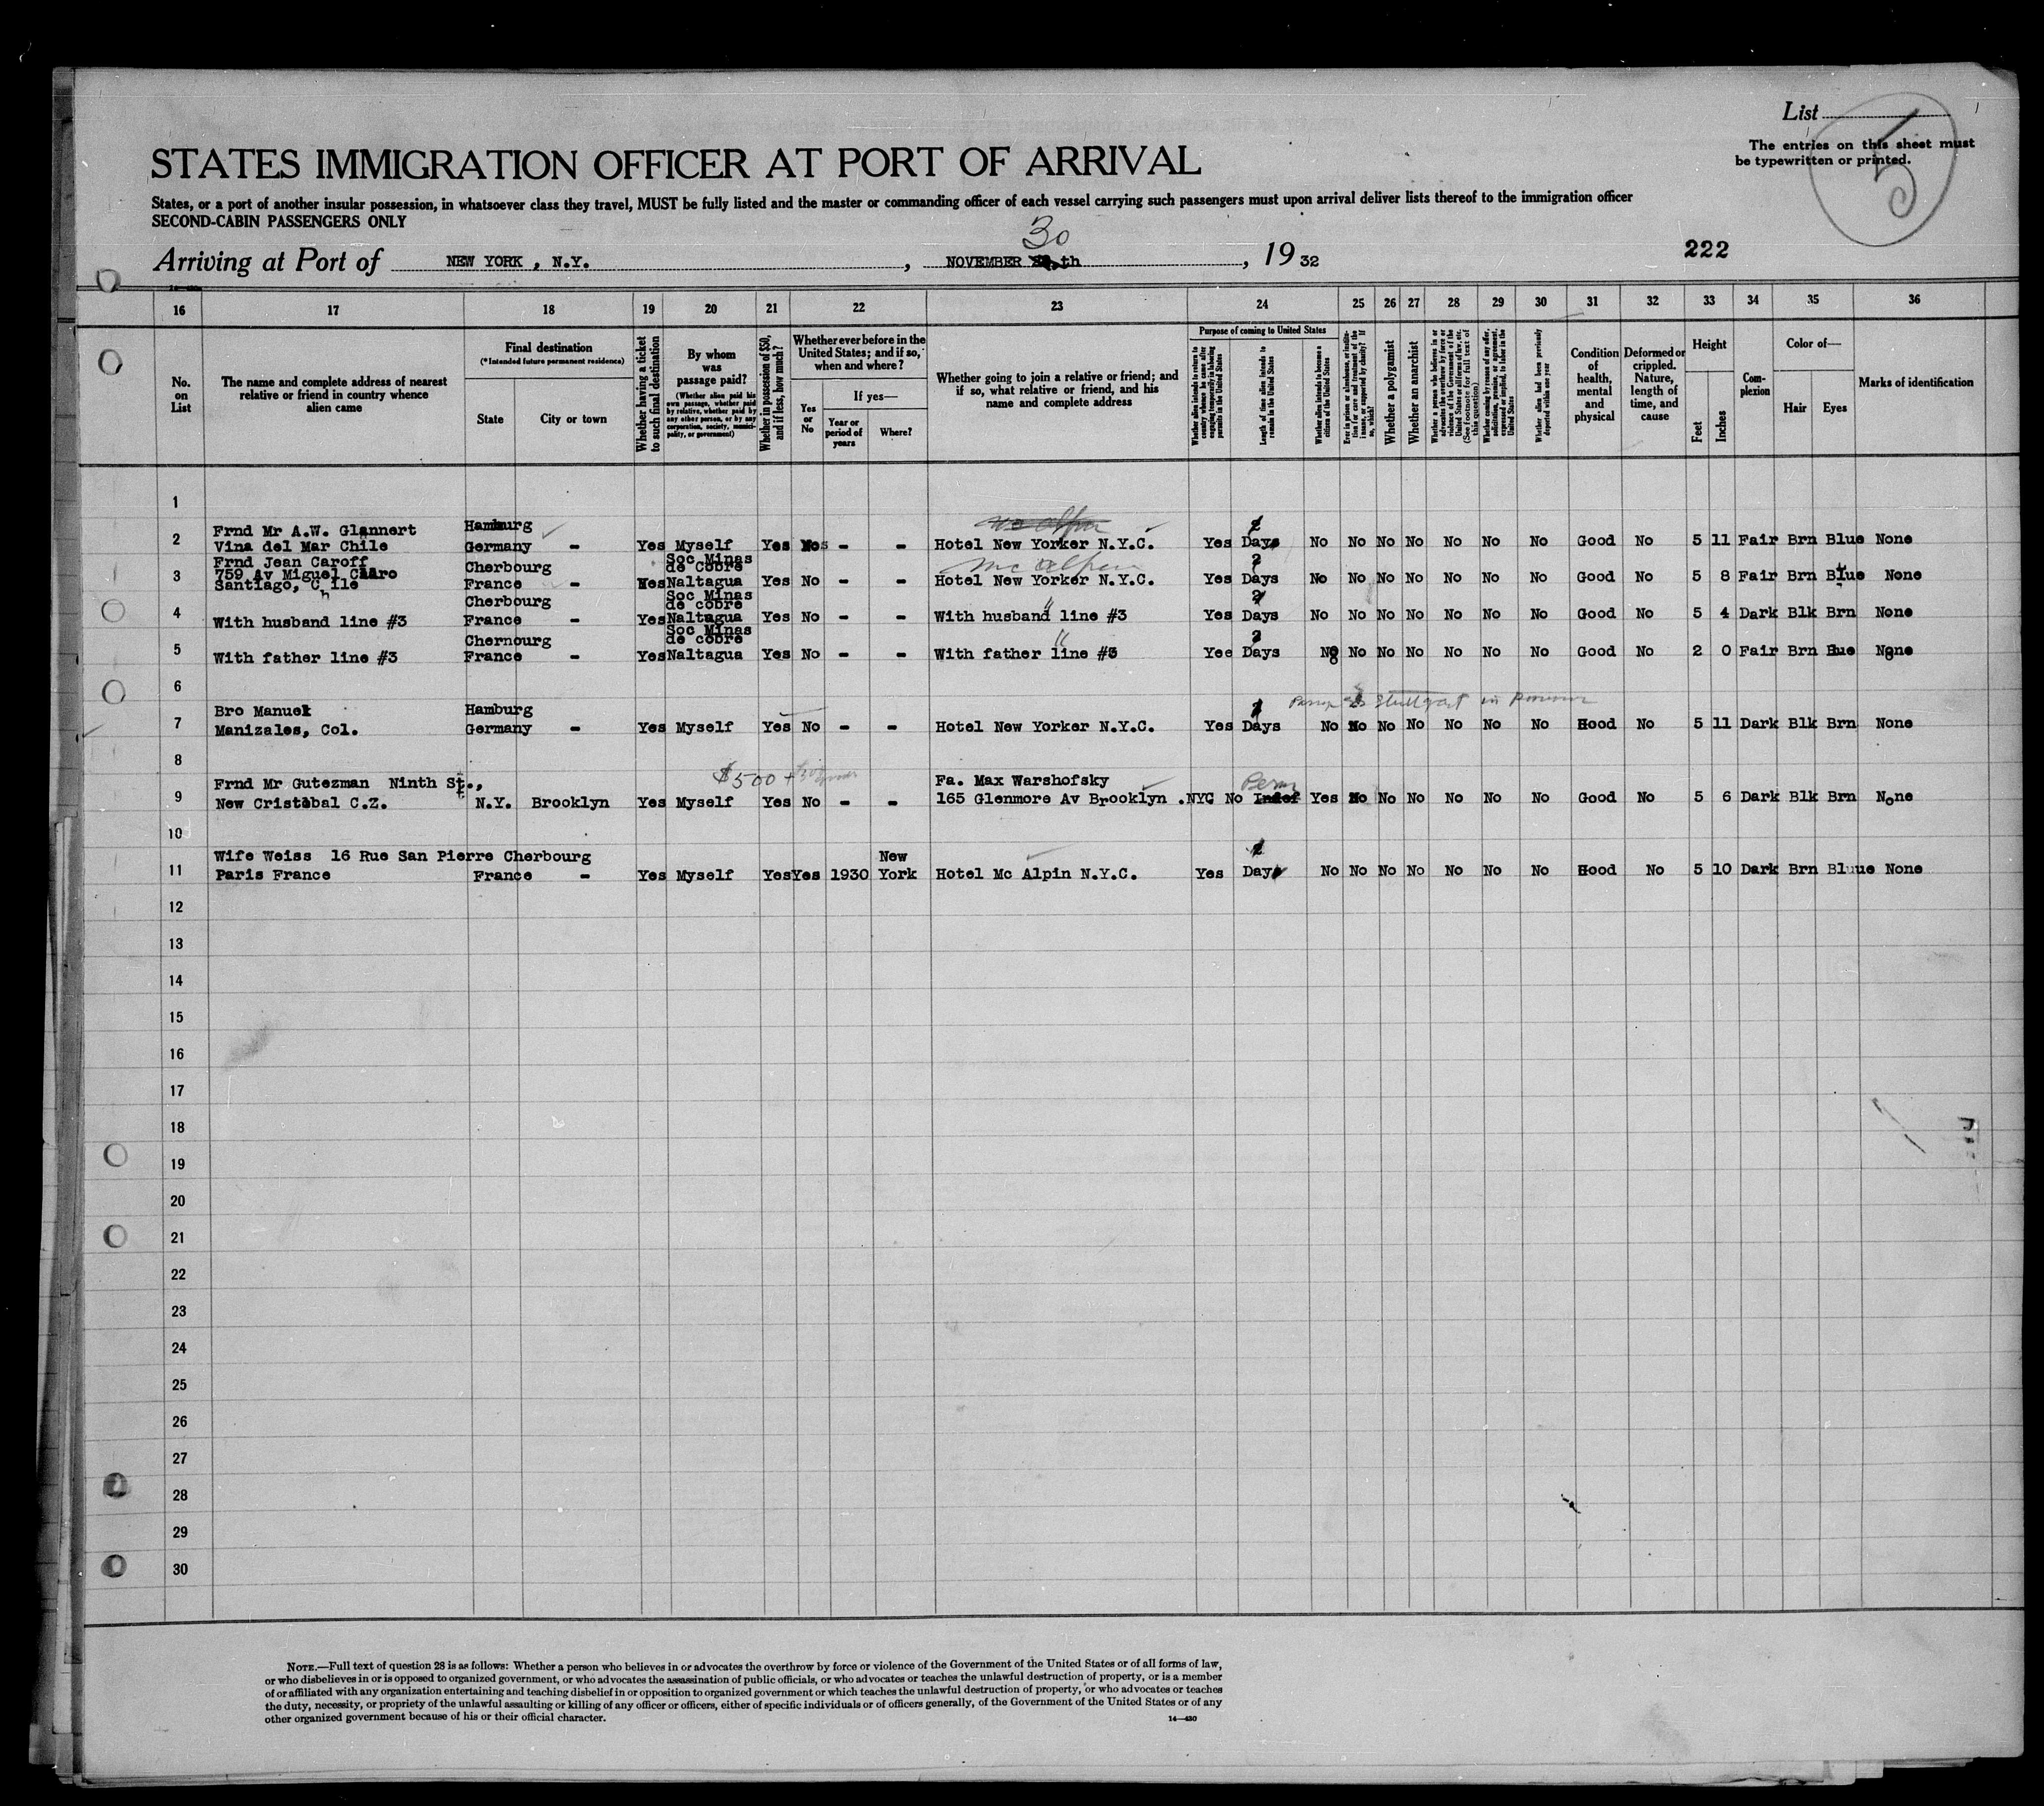 List
The entries on this sheet must
be typewritten or printed.
5
STATES IMMIGRATION OFFICER AT PORT OF ARRIVAL
States, or a port of another insular possession, in whatsoever class they travel, MUST be fully listed and the master or commanding officer of each vessel carrying such passengers must upon arrival deliver lists thereof to the immigration officer
SECOND-CABIN PASSENGERS ONLY
30
Arriving at Port of NEW YORK , N.Y. , NOVEMBER th , 19 32
222
16 17 18 19 20 21 22 23 24 25 26 27 28 29 30 31 32 33 34 35 36
No. on List
The name and complete address of nearest relative or friend in country whence alien came
Final destination
(*Intended future permanent residence)
State City or town
Whether having a ticket to such final destination
By whom was passage paid?
(Whether alien paid his own passage, whether paid by relative, whether paid by any other person, or by any corporation, society, municipality, or government)
Whether in possession of $50, and if less, how much?
Whether ever before in the United States; and if so, when and where?
Yes or No
If yes—
Year or period of years Where?
Whether going to join a relative or friend; and if so, what relative or friend, and his name and complete address
Purpose of coming to United States
Whether alien intends to return to country whence he came after engaging temporarily in laboring pursuits in the United States
Length of time alien intends to remain in the United States
Whether alien intends to become a citizen of the United States
Ever in prison or almshouse, or institution for care and treatment of the insane, or supported by charity? If so, which?
Whether a polygamist
Whether an anarchist
Whether a person who believes in or advocates the overthrow by force or violence of the Government of the United States or all forms of law, etc. (See footnote for full text of this question)
Whether coming by reason of any offer, solicitation, promise, or agreement, expressed or implied, to labor in the United States
Whether alien had been previously deported within one year
Condition of health, mental and physical
Deformed or crippled. Nature, length of time, and cause
Height
Feet Inches
Complexion
Color of—
Hair Eyes
Marks of identification
1
Frnd Mr A.W. Glannert Hamburg
2 Vina del Mar Chile Germany - Yes Myself Yes - - Hotel New Yorker N.Y.C. Yes Days No No No No No No No Good No 5 11 Fair Brn Blue None
Frnd Jean Caroff Cherbourg Soc Minas Mc Alpin 2
3 759 Av Miguel Claro de Cobre
Santiago, Chile France - Yes Naltagua Yes No - - Hotel New Yorker N.Y.C. Yes Days No No No No No No No Good No 5 8 Fair Brn Blue None
Cherbourg Soc Minas
de cobre " 2
4 With husband line #3 France - Yes Naltagua Yes No - - With husband line #3 Yes Days No No No No No No No Good No 5 4 Dark Blk Brn None
Chernourg Soc Minas
de cobre " 2
5 With father line #3 France - Yes Naltagua Yes No - - With father line #3 Yee Days No No No No No No No Good No 2 0 Fair Brn None
6
Bro Manuel Hamburg Stuttgart in
7 Manizales, Col. Germany - Yes Myself Yes No - - Hotel New Yorker N.Y.C. Yes Days No No No No No No No Hood No 5 11 Dark Blk Brn None
8
Frnd Mr Gutezman Ninth St., $500 + Fa. Max Warshofsky Perm
9 New Cristobal C.Z. N.Y. Brooklyn Yes Myself Yes No - - 165 Glenmore Av Brooklyn .NYC No Indef Yes No No No No No No Good No 5 6 Dark Blk Brn None
10
Wife Weiss 16 Rue San Pierre Cherbourg New
11 Paris France France - Yes Myself Yes Yes 1930 York Hotel Mc Alpin N.Y.C. Yes Day No No No No No No No Hood No 5 10 Dark Brn Bluue None
12
13
14
15
16
17
18
19
20
21
22
23
24
25
26
27
28
29
30
NOTE.—Full text of question 28 is as follows: Whether a person who believes in or advocates the overthrow by force or violence of the Government of the United States or of all forms of law,
or who disbelieves in or is opposed to organized government, or who advocates the assassination of public officials, or who advocates or teaches the unlawful destruction of property, or is a member
of or affiliated with any organization entertaining and teaching disbelief in or opposition to organized government or which teaches the unlawful destruction of property, or who advocates or teaches
the duty, necessity, or propriety of the unlawful assaulting or killing of any officer or officers, either of specific individuals or of officers generally, of the Government of the United States or of any
other organized government because of his or their official character.
14—430